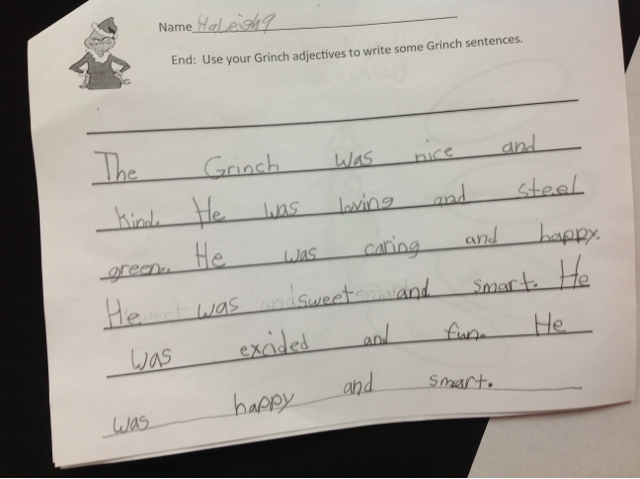 Name Haleigh
End: Use your Grinch adjectives to write some Grinch sentences.
The Grinch was nice and
kind. He was loving and steel
green. He was caring and happy.
He was sweet and smart. He
was excided and fun. He
was happy and smart.